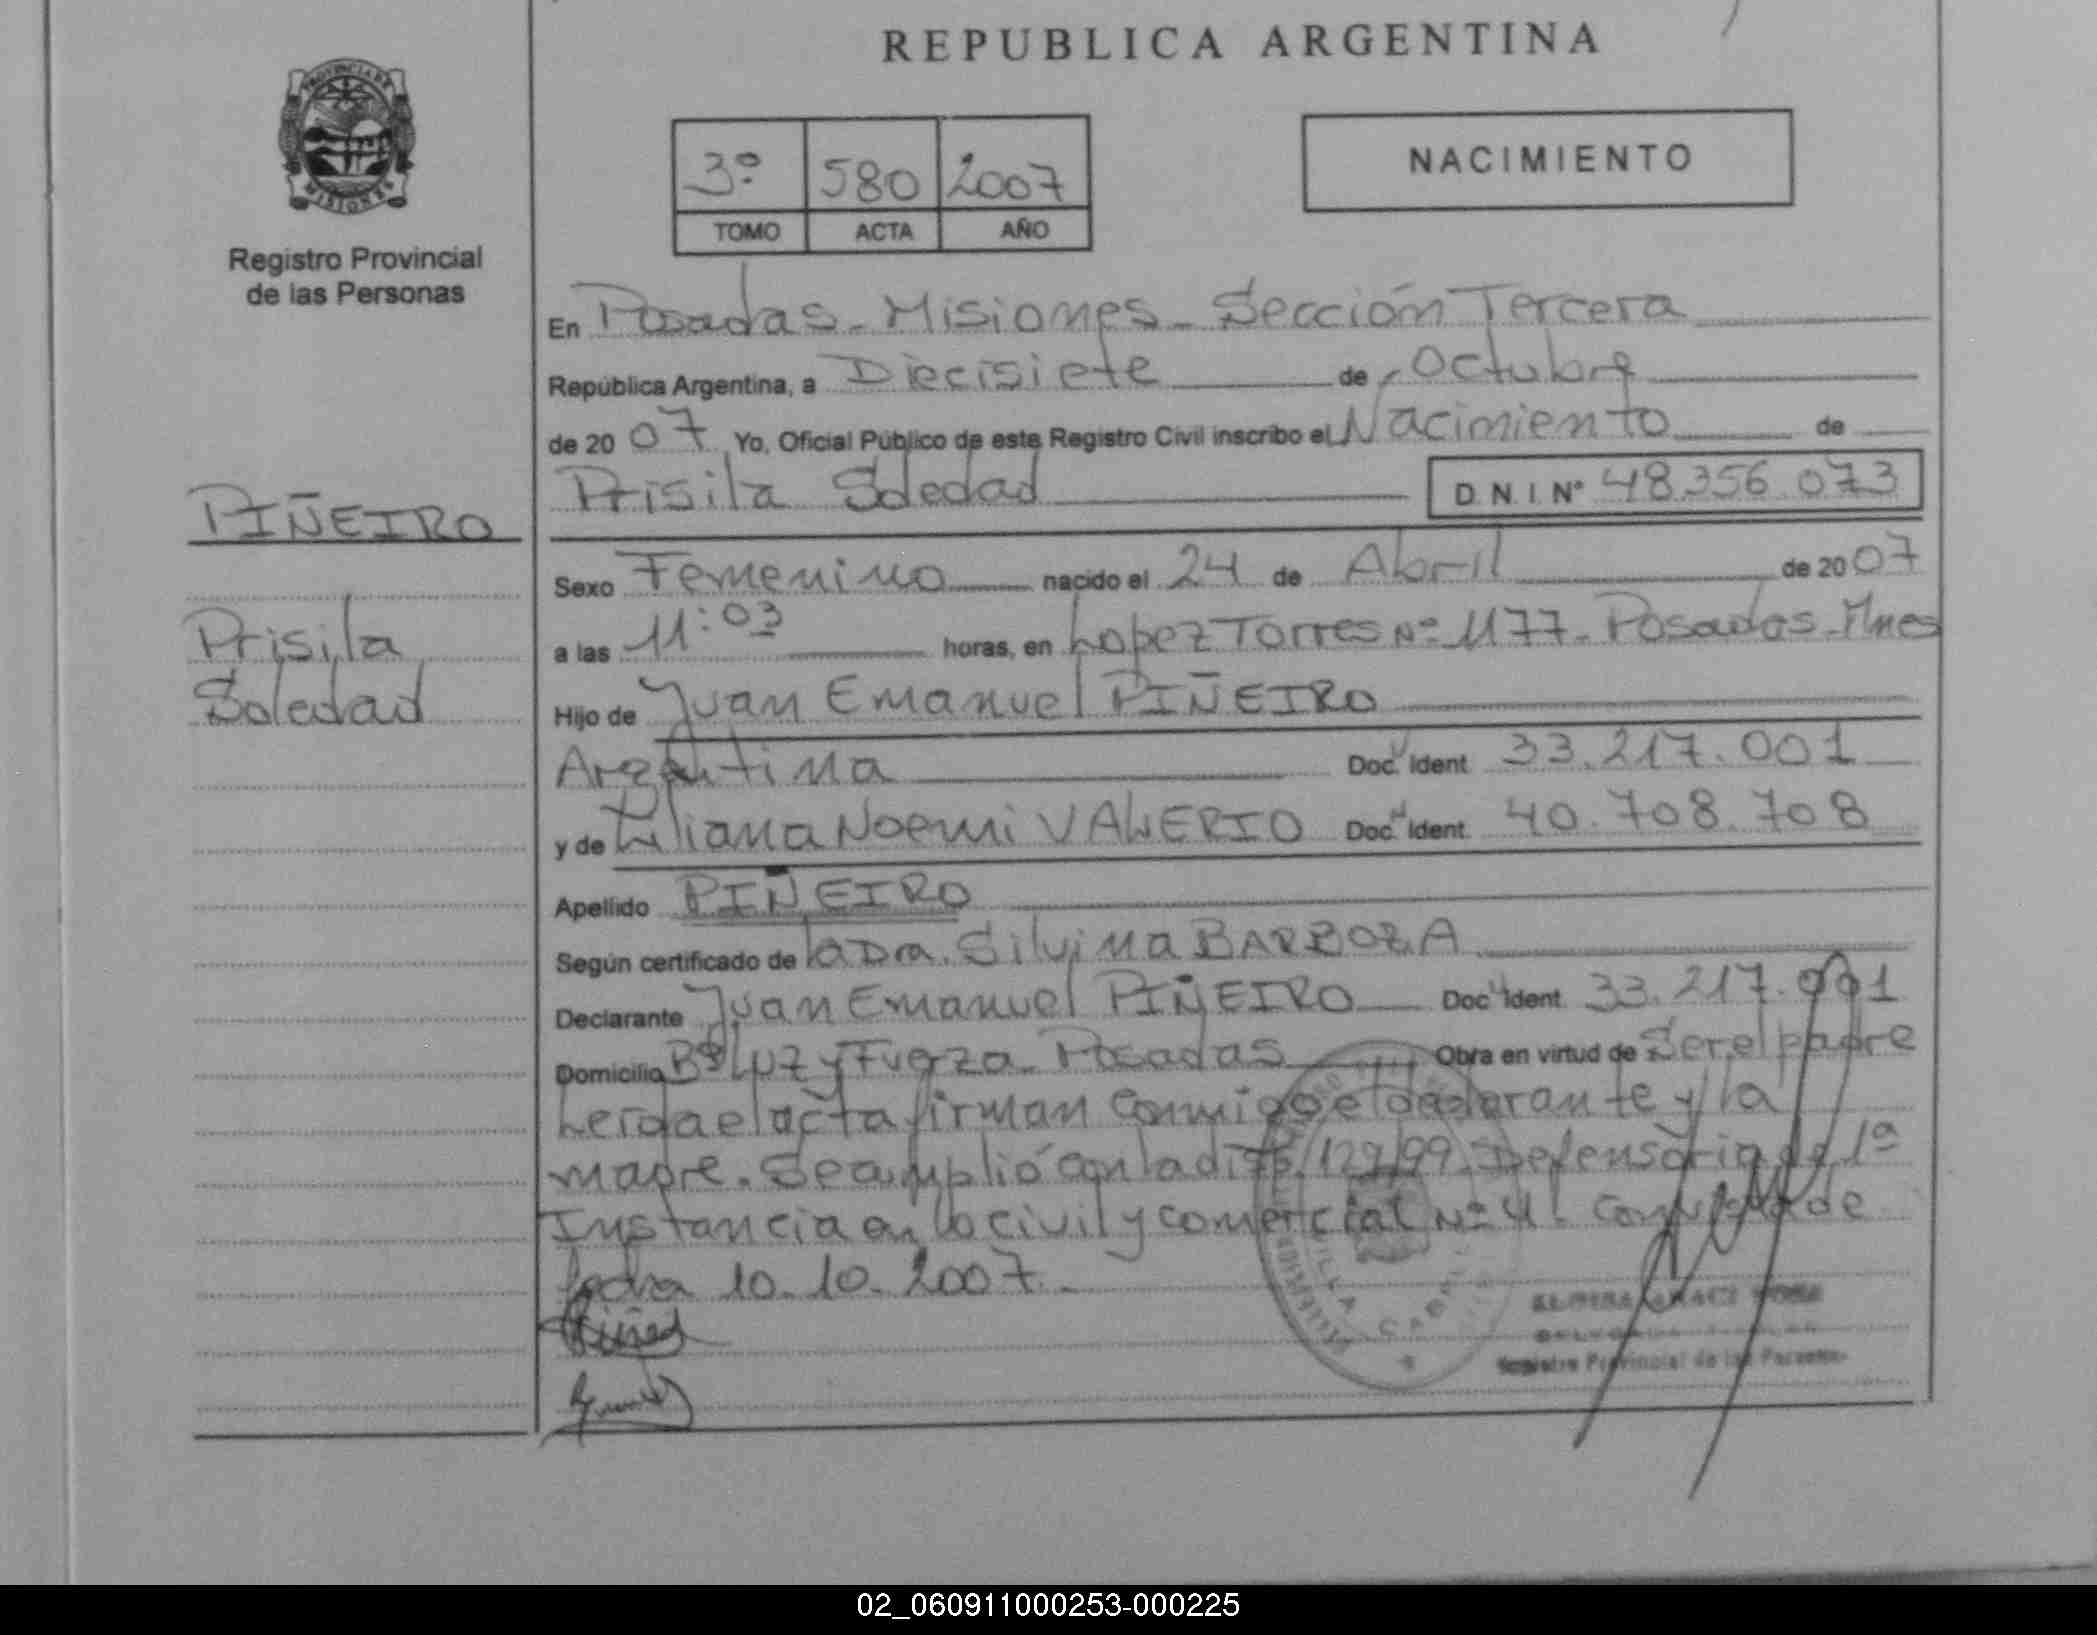 REPUBLICA ARGENTINA
PROVINCIA DE
MISIONES
Registro Provincial
de las Personas
3º 580 2007
TOMO ACTA AÑO
NACIMIENTO
En Posadas - Misiones - Sección Tercera
República Argentina, a Diecisiete de Octubre
de 20 07 Yo, Oficial Público de este Registro Civil inscribo el Nacimiento de
Prisila Soledad D.N.I. Nº 48.356.073
PIÑEIRO
Prisila
Soledad
Sexo Femenino nacido el 24 de Abril de 20 07
a las 11:03 horas, en Lopez Torres Nº 1177 - Posadas - Mnes
Hijo de Juan Emanuel PIÑEIRO
Argentina Doc. Ident 33.217.001
y de Liliana Noemi VALERIO Doc. Ident. 40.708.708
Apellido PIÑEIRO
Según certificado de la Dra. Silvina BARBOZA
Declarante Juan Emanuel PIÑEIRO Doc. Ident. 33.217.001
Domicilio Bº Luz y Fuerza - Posadas Obra en virtud de Ser el padre
Leida el acta firman conmigo el declarante y la
madre. Se amplió con la disp. 129/99 Defensoria de 1ª
Instancia en lo civil y comercial Nº 4. de
fecha 10.10.2007.-
VILLA CABELLO
Registro Provincial de las Personas
02_060911000253-000225